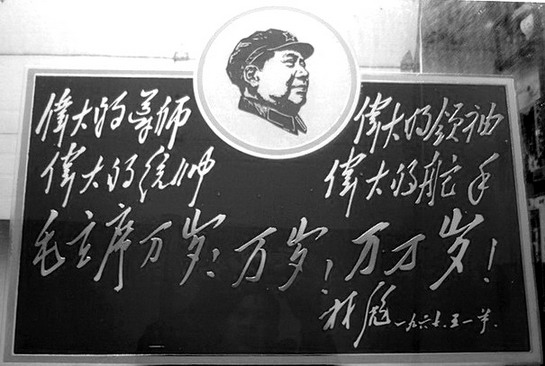 偉大的导师 偉大的领袖
偉大的统帅 偉大的舵手
毛主席万岁！万岁！万万岁！
林彪 一九六七.五一节.